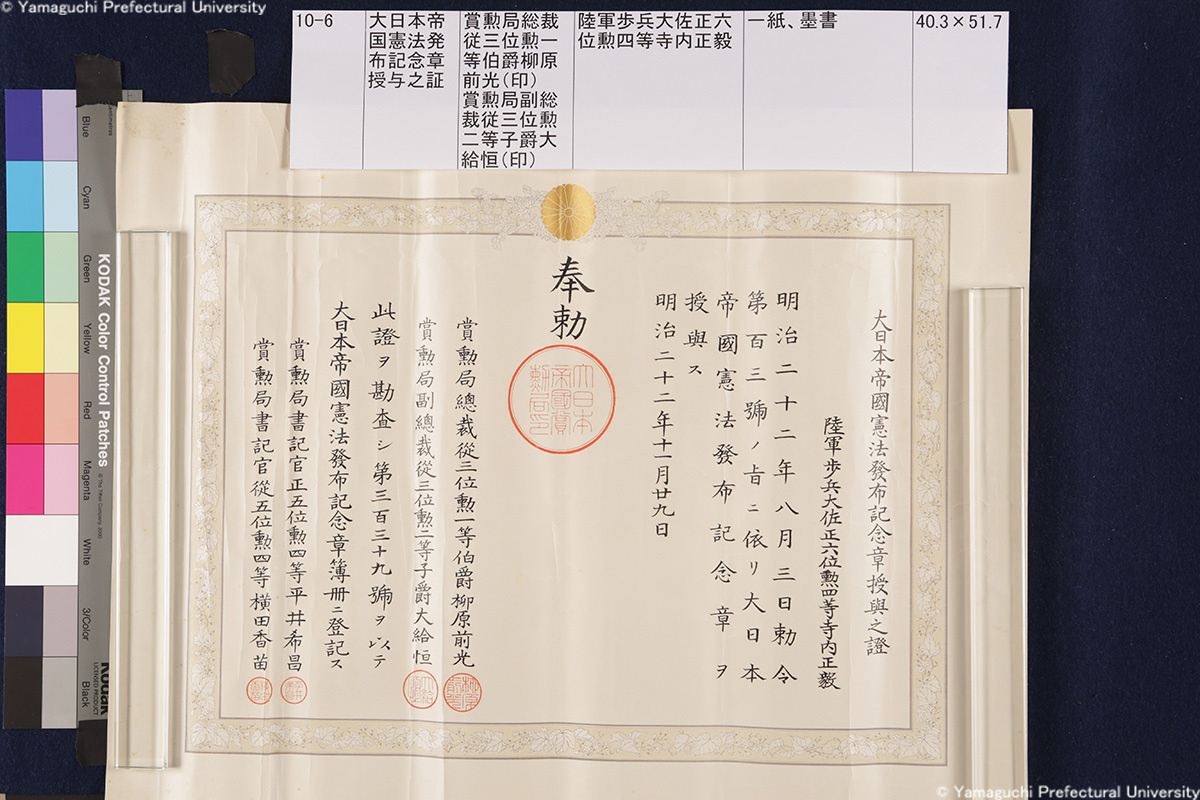 © Yamaguchi Prefectural University
10-6
大日本帝
国憲法発
布記念章
授与之証
賞勲局総裁
従三位勲一
等伯爵柳原
前光(印)
賞勲局副総
裁従三位勲
二等子爵大
給恒(印)
陸軍歩兵大佐正六
位勲四等寺内正毅
一紙、墨書
40.3×51.7
大日本帝國憲法發布記念章授與之證
陸軍歩兵大佐正六位勲四等寺内正毅
明治二十二年八月三日勅令
第百三號ノ旨ニ依リ大日本
帝國憲法發布記念章ヲ
授與ス
明治二十二年十一月廿九日
奉勅
大日本
帝國賞
勲局印
賞勲局總裁從三位勲一等伯爵柳原前光
賞勲局副總裁從三位勲二等子爵大給恒
此證ヲ勘査シ第三百三十九號ヲ以テ
大日本帝國憲法發布記念章簿册ニ登記ス
賞勲局書記官正五位勲四等平井希昌
賞勲局書記官從五位勲四等横田香苗
KODAK Color Control Patches
Blue
Cyan
Green
Yellow
Red
Magenta
White
3/Color
Black
Kodak
LICENSED PRODUCT
© Yamaguchi Prefectural University